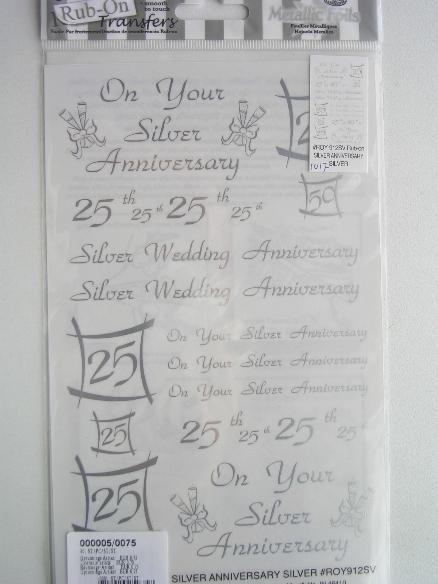 Rub-On
Transfers
smooth
to touch
Metallic Foils
On Your
Silver
Anniversary
#ROY912SV Rub-on
SILVER ANNIVERSARY
SILVER
25 th 25 th 25 th 25 th
Silver Wedding Anniversary
Silver Wedding Anniversary
25
On Your Silver Anniversary
On Your Silver Anniversary
On Your Silver Anniversary
25
25 th 25 th 25 th 25 th
25
On Your
Silver
Anniversary
000005/0075
SILVER ANNIVERSARY SILVER #ROY912SV